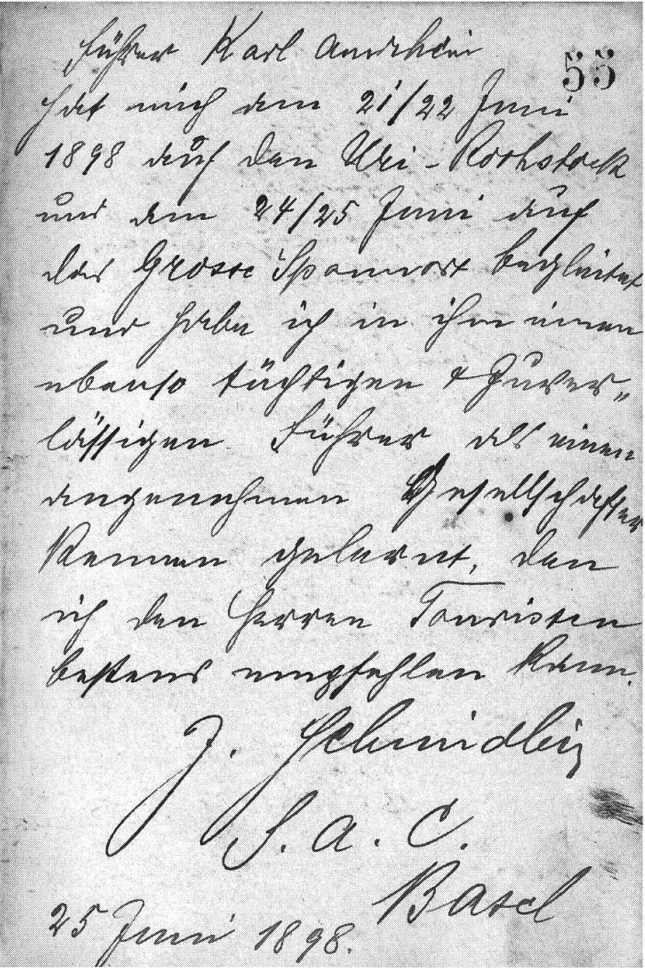 Führer Karl Amrhein
55
hat mich am 21/22 Juni
1898 auf den Uri-Rothstock
und am 24/25 Juni auf
das Grosse Spannort begleitet
und habe ich in ihm einen
ebenso tüchtigen & Zuver„
lässigen Führer als einen
angenehmen Gesellschafter
kennen gelernt, den
ich den Herren Touristen
bestens empfehlen kann.
J. Schmidlin
S.A.C.
Basel
25 Juni 1898.